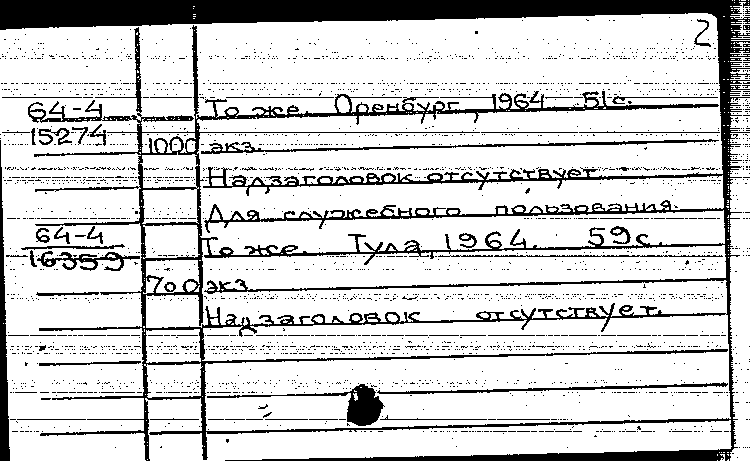 2
64-4 То же. Оренбург, 1964 51с.
15274 1000 экз.
Надзаголовок отсутствует
Для служебного пользования.
64-4 То же. Тула, 1964. 59с.
16359
700 экз.
Надзаголовок отсутствует.